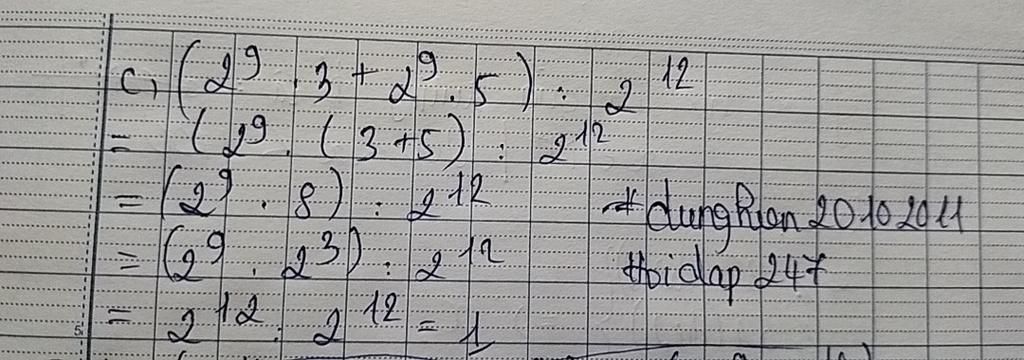 c, (2⁹ . 3 + 2⁹ . 5) : 2¹²
= (2⁹ . (3 + 5) : 2¹²
= (2⁹ . 8) : 2¹²
= (2⁹ . 2³) : 2¹²
= 2¹² : 2¹² = 1
20102011
Hoidap 247
5